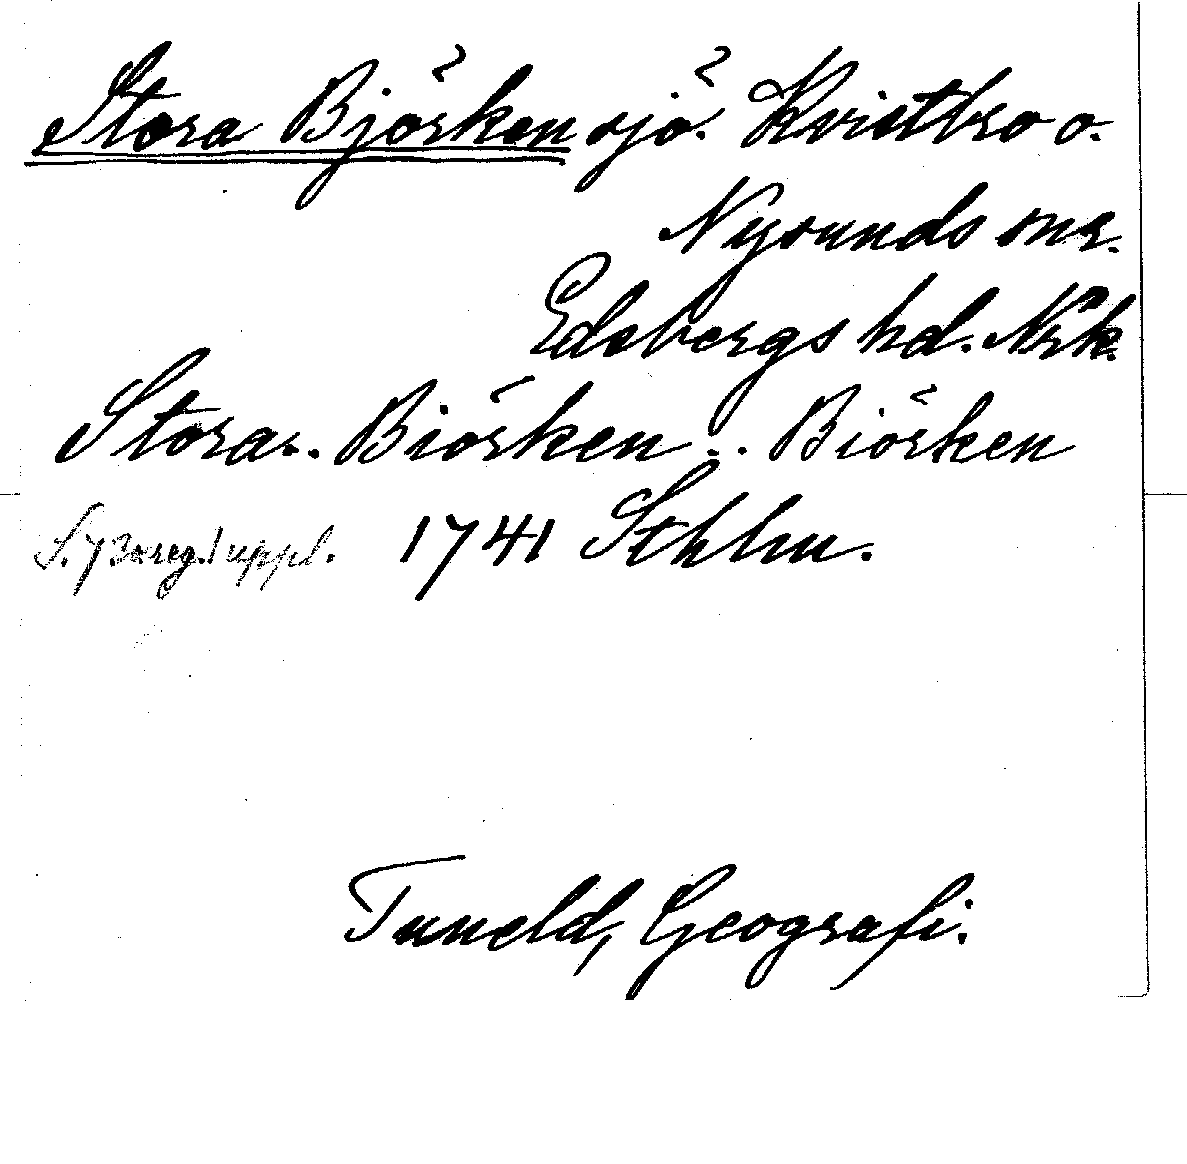 Stora Björken sjö. Kvistbro o.
Nysunds snr.
Edsbergs hd. Nrk.
Stora.. Biörken .. Biörken
1741 Sthlm.
Tuneld, Geografi.